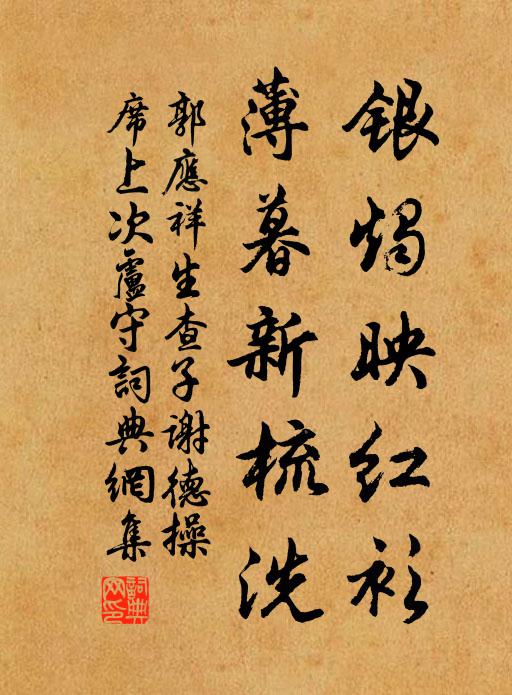 銀燭映红衫
薄暮新梳洗
郭應祥生查子謝德操
席上次盧守詞典網集
詞典网印